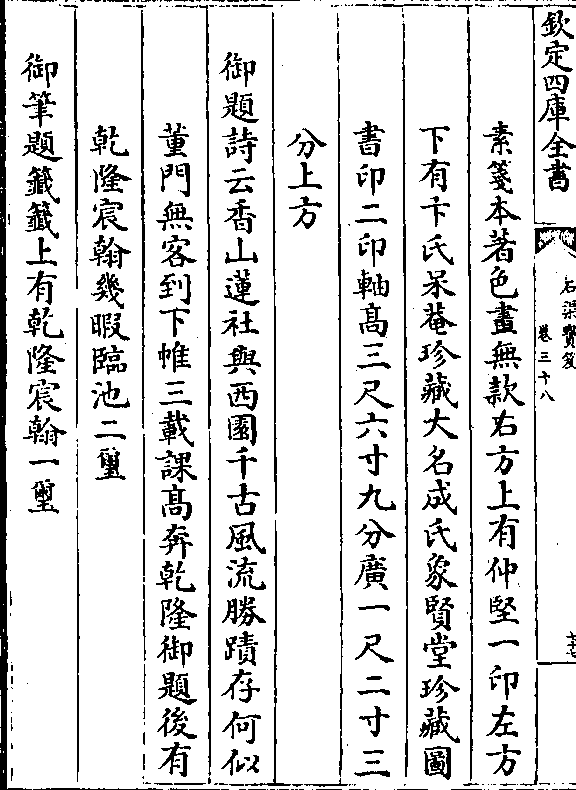 欽定四庫全書
石渠寶笈
卷三十八
素箋本著色畫無款右方上有仲堅一印左方
下有卞氏呆菴珍藏大名成氏象賢堂珍藏圖
書印二印軸髙三尺六寸九分廣一尺二寸三
分上方
御題詩云香山蓮社與西園千古風流勝蹟存何似
董門無客到下帷三載課髙奔乾隆御題後有
乾隆宸翰幾暇臨池二璽
御筆題籤籤上有乾隆宸翰一璽